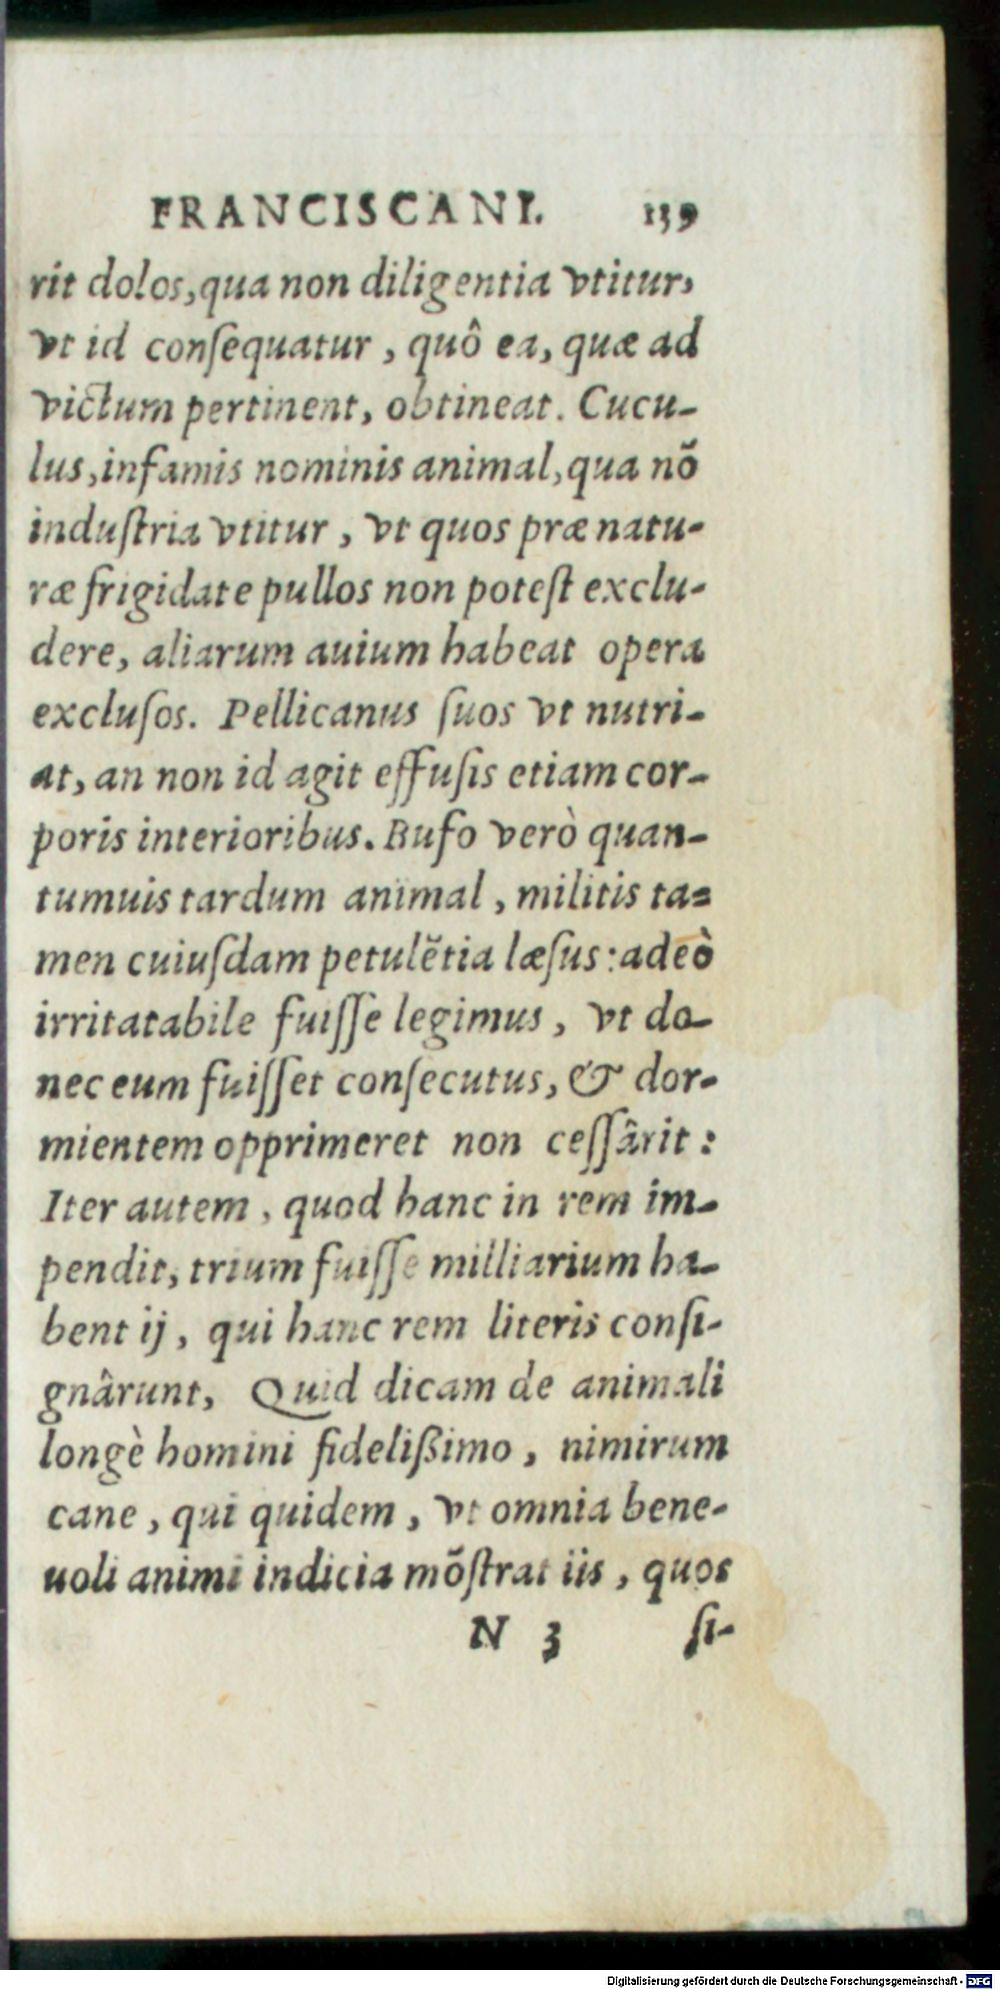 FRANCISCANI. 139
rit dolos, qua non diligentia vtitur,
vt id conſequatur, quô ea, quæ ad
victum pertinent, obtineat. Cucu-
lus, infamis nominis animal, qua nõ
induſtria vtitur, vt quos præ natu-
ræ frigidate pullos non poteſt exclu-
dere, aliarum auium habeat opera
excluſos. Pellicanus ſuos vt nutri-
at, an non id agit effuſis etiam cor-
poris interioribus. Bufo verò quan-
tumuis tardum animal, militis ta=
men cuiuſdam petulẽtia læſus: adeò
irritatabile fuiſſe legimus, vt do-
nec eum fuiſſet conſecutus, & dor-
mientem opprimeret non ceſſârit:
Iter autem, quod hanc in rem im-
pendit, trium fuiſſe milliarium ha-
bent ij, qui hanc rem literis conſi-
gnârunt, Quid dicam de animali
longè homini fidelißimo, nimirum
cane, qui quidem, vt omnia bene-
uoli animi indicia mõſtrat iis, quos
N 3 ſi-
Digitalisierung gefördert durch die Deutsche Forschungsgemeinschaft - DFG